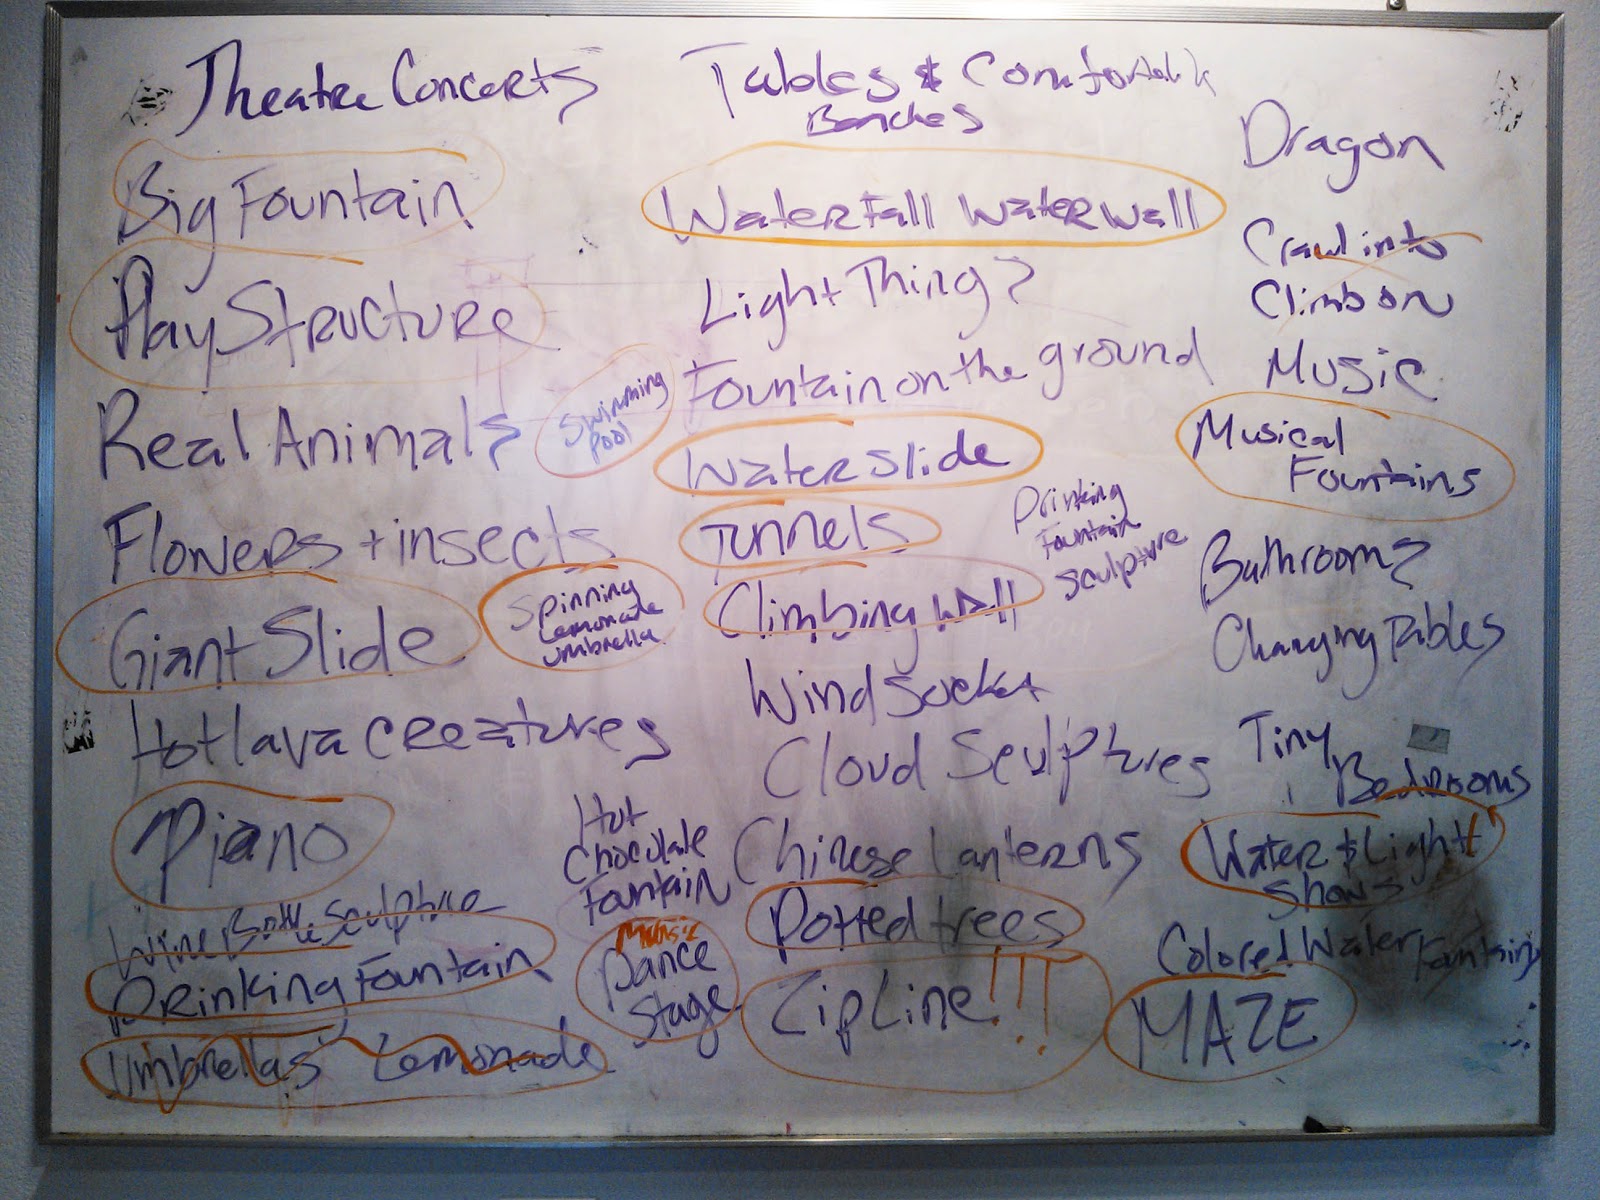 Theatre Concerts
Big Fountain
Play Structure
Real Animals
Swimming
Pool
Flowers + insects
Giant Slide
Spinning
Lemonade
umbrella
Hot lava creatures
Piano
Wine Bottle Sculpture
Drinking Fountain
Umbrellas Lemonade
Hot
Chocolate
Fountain
Music
Dance
Stage
Tables & Comfortable
Benches
Waterfall Water Wall
Light Thing?
Fountain on the ground
Water Slide
Tunnels
Drinking
Fountain
Sculpture
Climbing Wall
Wind Socket
Cloud Sculptures
Chinese Lanterns
Potted trees
Zip Line!!!
Dragon
Crawl into
Climb on
Music
Musical
Fountains
Bathroom?
Changing Tables
Tiny
Bedrooms
Water & Light
Shows
Colored Water Fountains
MAZE